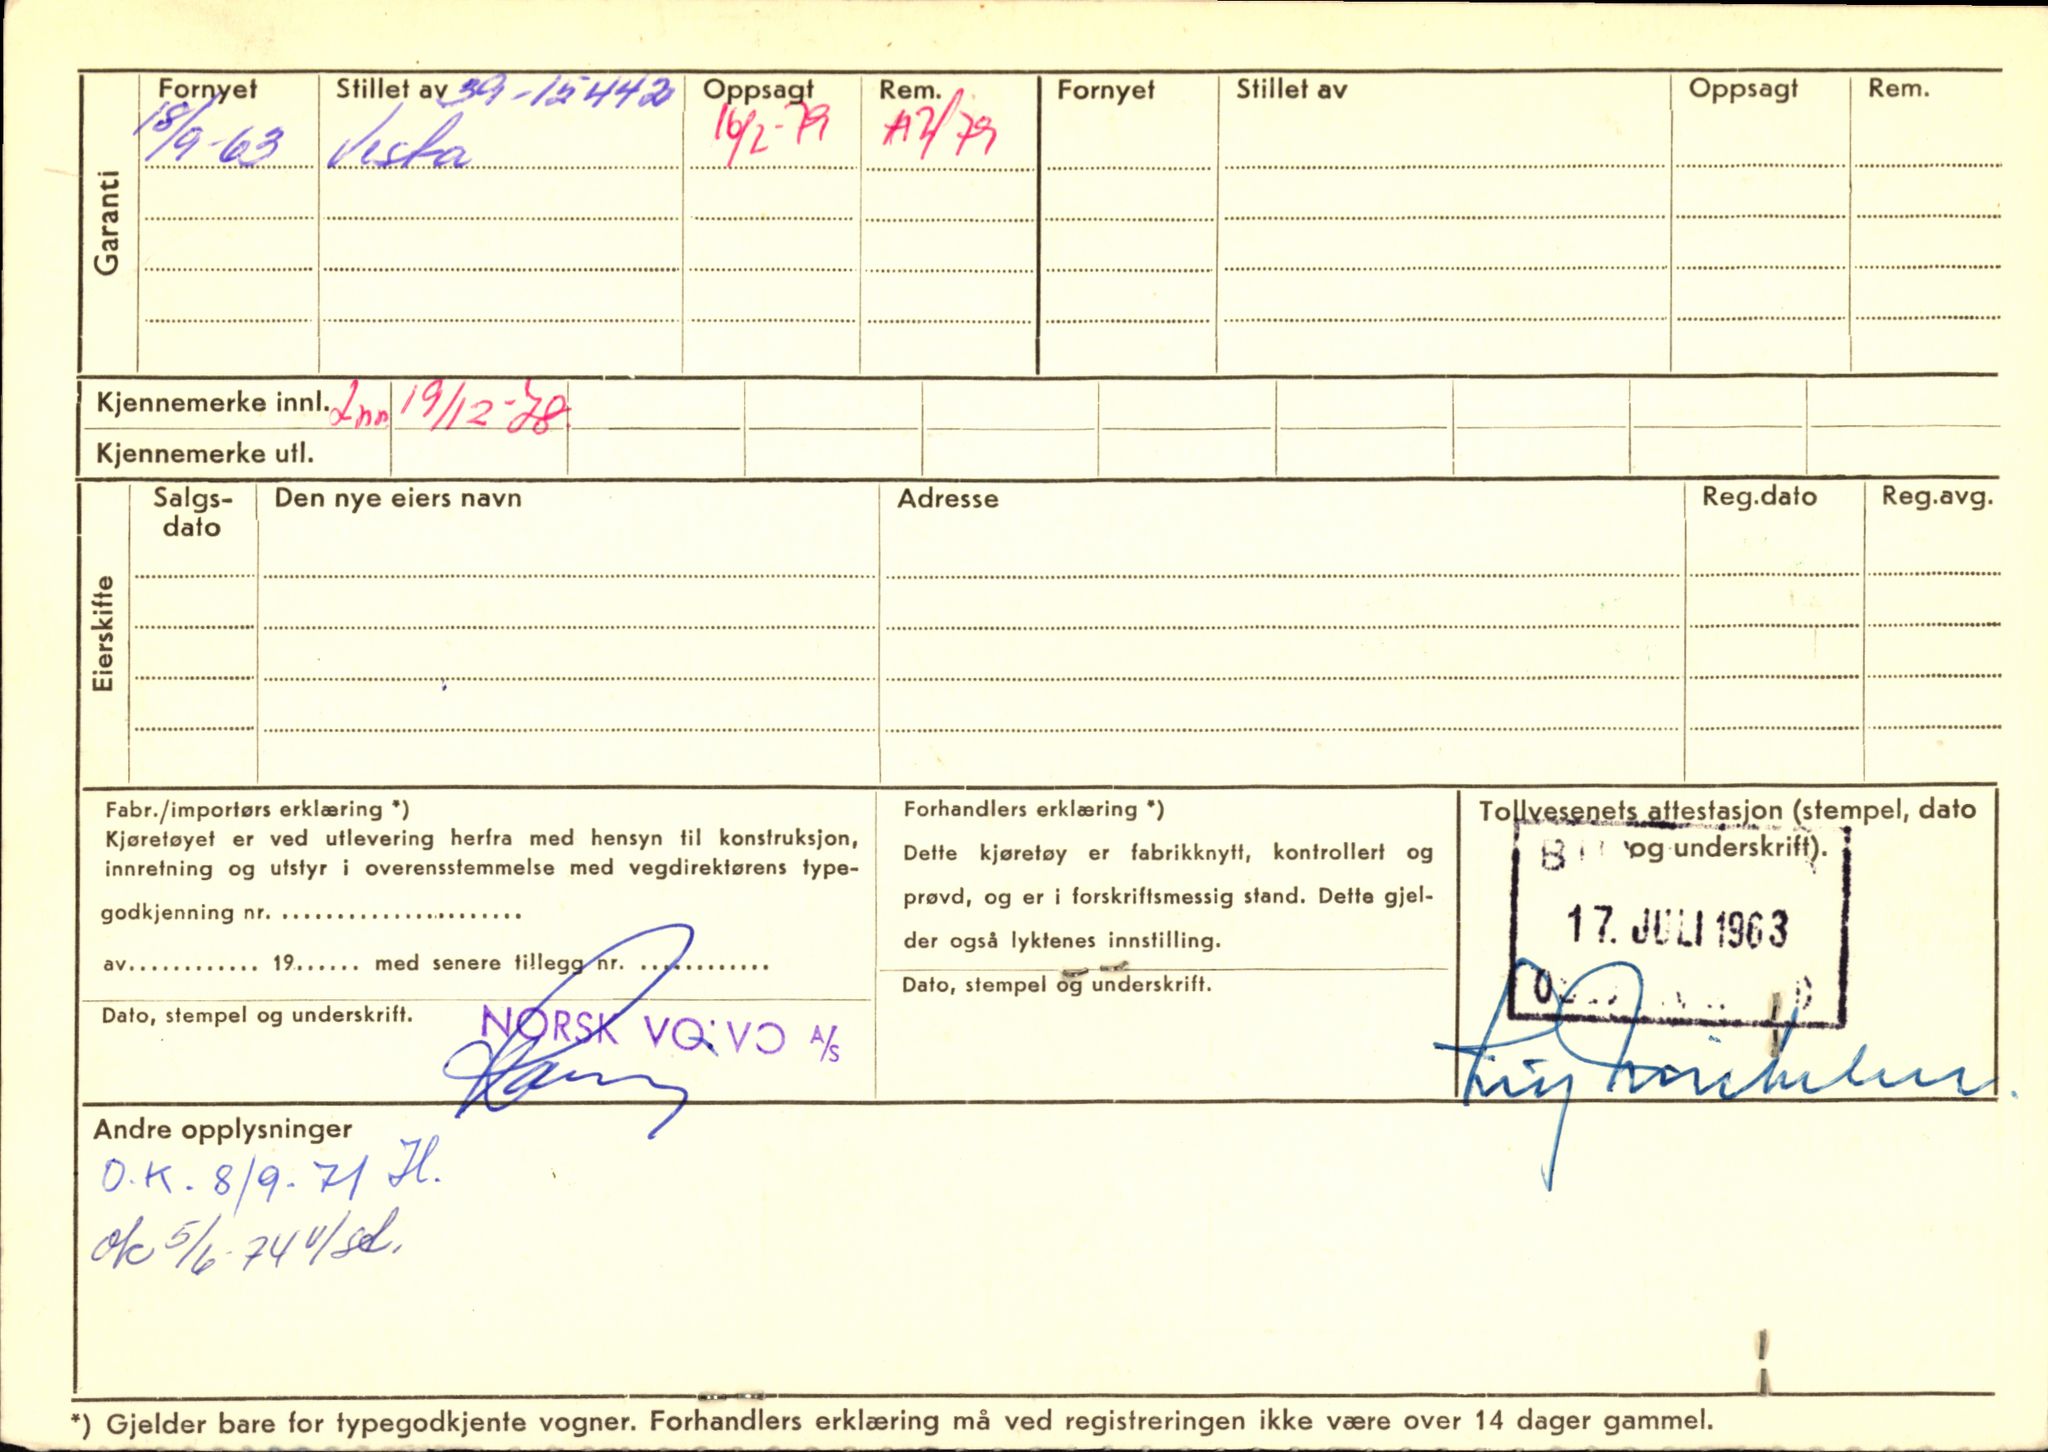 Garanti
Fornyet Stillet av 39-15442 Oppsagt Rem. Fornyet Stillet av Oppsagt Rem.
18/9-63 Vesta 16/2-79 A2/79
Kjennemerke innl. Inn 19/12-78
Kjennemerke utl.
Eierskifte
Salgs- Den nye eiers navn Adresse Reg.dato Reg.avg.
dato
Fabr./importørs erklæring *)
Kjøretøyet er ved utlevering herfra med hensyn til konstruksjon,
innretning og utstyr i overensstemmelse med vegdirektørens type-
godkjenning nr. ......................
av............ 19...... med senere tillegg nr. ............
Dato, stempel og underskrift.
NORSK VOLVO A/S
Forhandlers erklæring *)
Dette kjøretøy er fabrikknytt, kontrollert og
prøvd, og er i forskriftsmessig stand. Dette gjel-
der også lyktenes innstilling.
Dato, stempel og underskrift.
Tollvesenets attestasjon (stempel, dato
og underskrift).
17. JULI 1963
Andre opplysninger
O.K. 8/9-71 H.
ok 5/6-74 v/sd.
*) Gjelder bare for typegodkjente vogner. Forhandlers erklæring må ved registreringen ikke være over 14 dager gammel.